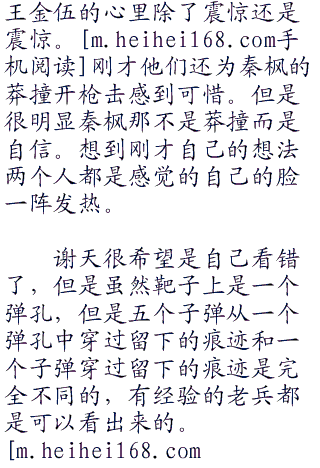 王金伍的心里除了震惊还是
震惊。[m.heihei168.com手
机阅读]刚才他们还为秦枫的
莽撞开枪击感到可惜。但是
很明显秦枫那不是莽撞而是
自信。想到刚才自己的想法
两个人都是感觉的自己的脸
一阵发热。
谢天很希望是自己看错
了，但是虽然靶子上是一个
弹孔，但是五个子弹从一个
弹孔中穿过留下的痕迹和一
个子弹穿过留下的痕迹是完
全不同的，有经验的老兵都
是可以看出来的。
[m.heihei168.com